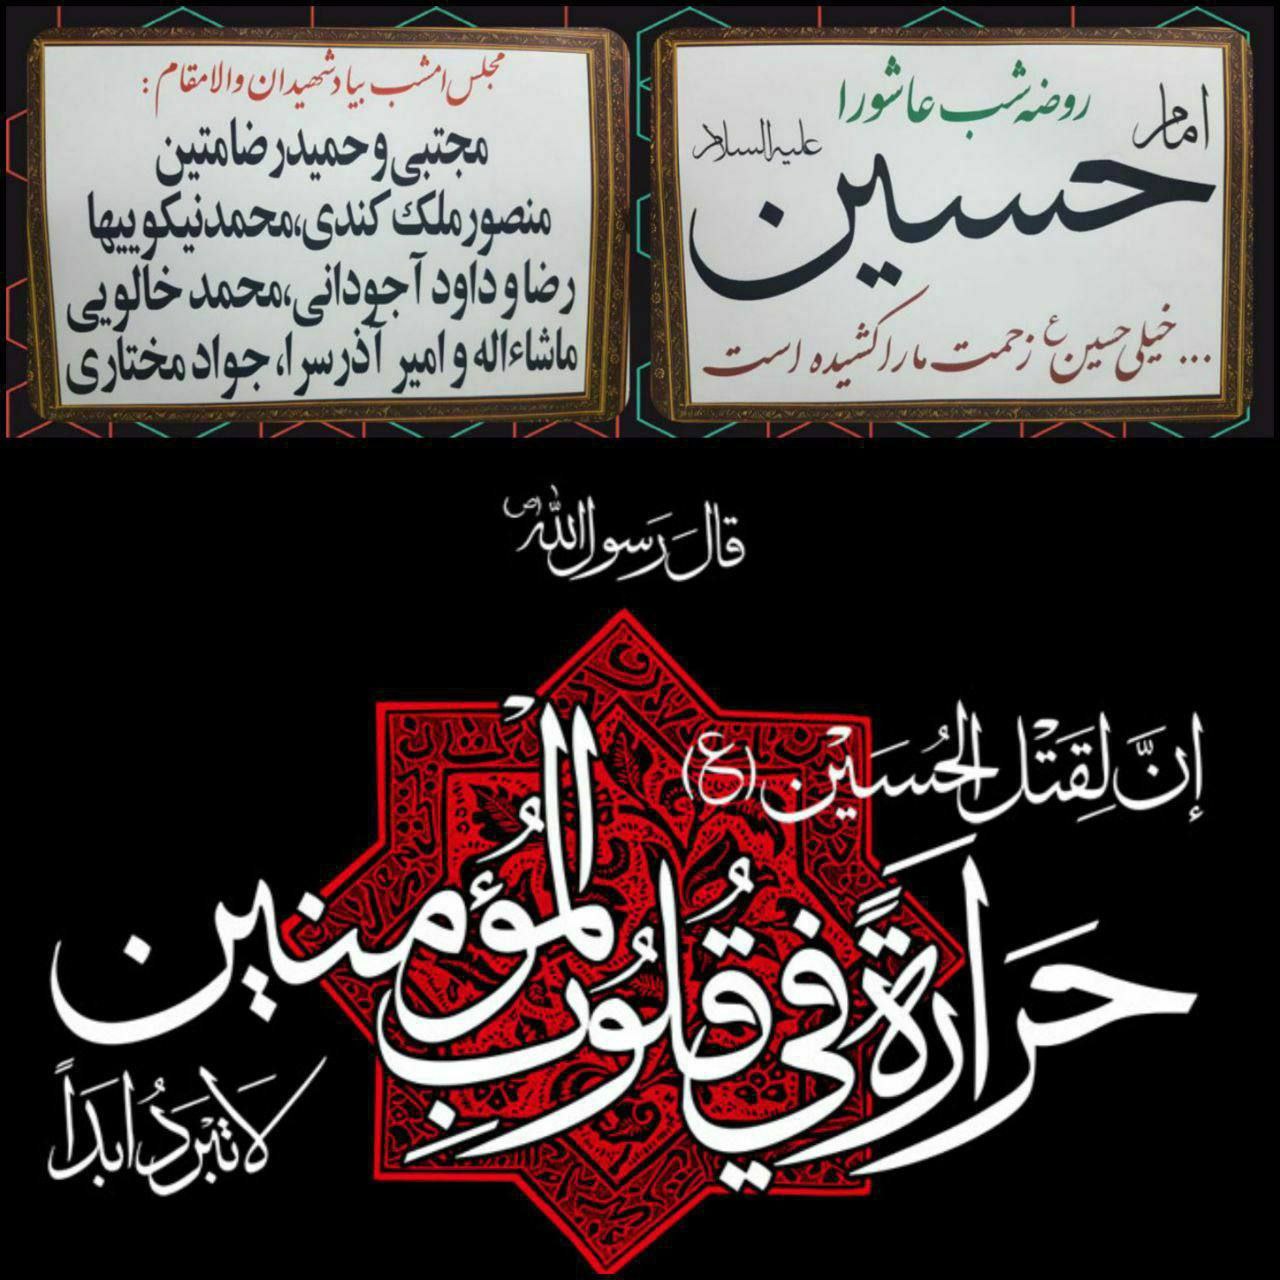 روضه شب عاشورا
امام حسین علیه السلام
... خیلی حسین ع زحمت ما را کشیده است
مجلس امشب بیاد شهیدان والامقام :
مجتبی و حمیدرضا متین
منصور ملک کندی، محمد نیکوییها
رضا و داود آجودانی، محمد خالویی
ماشاءاله و امیر آذرسرا، جواد مختاری
قالَ رَسولُ اللهِ (ص)
إنَّ لِقَتْلِ الحُسَیْنِ (ع)
حَرَارَةً فی قُلُوبِ الْمُؤمِنینَ
لَا تَبْرَدُ ابَدَاً